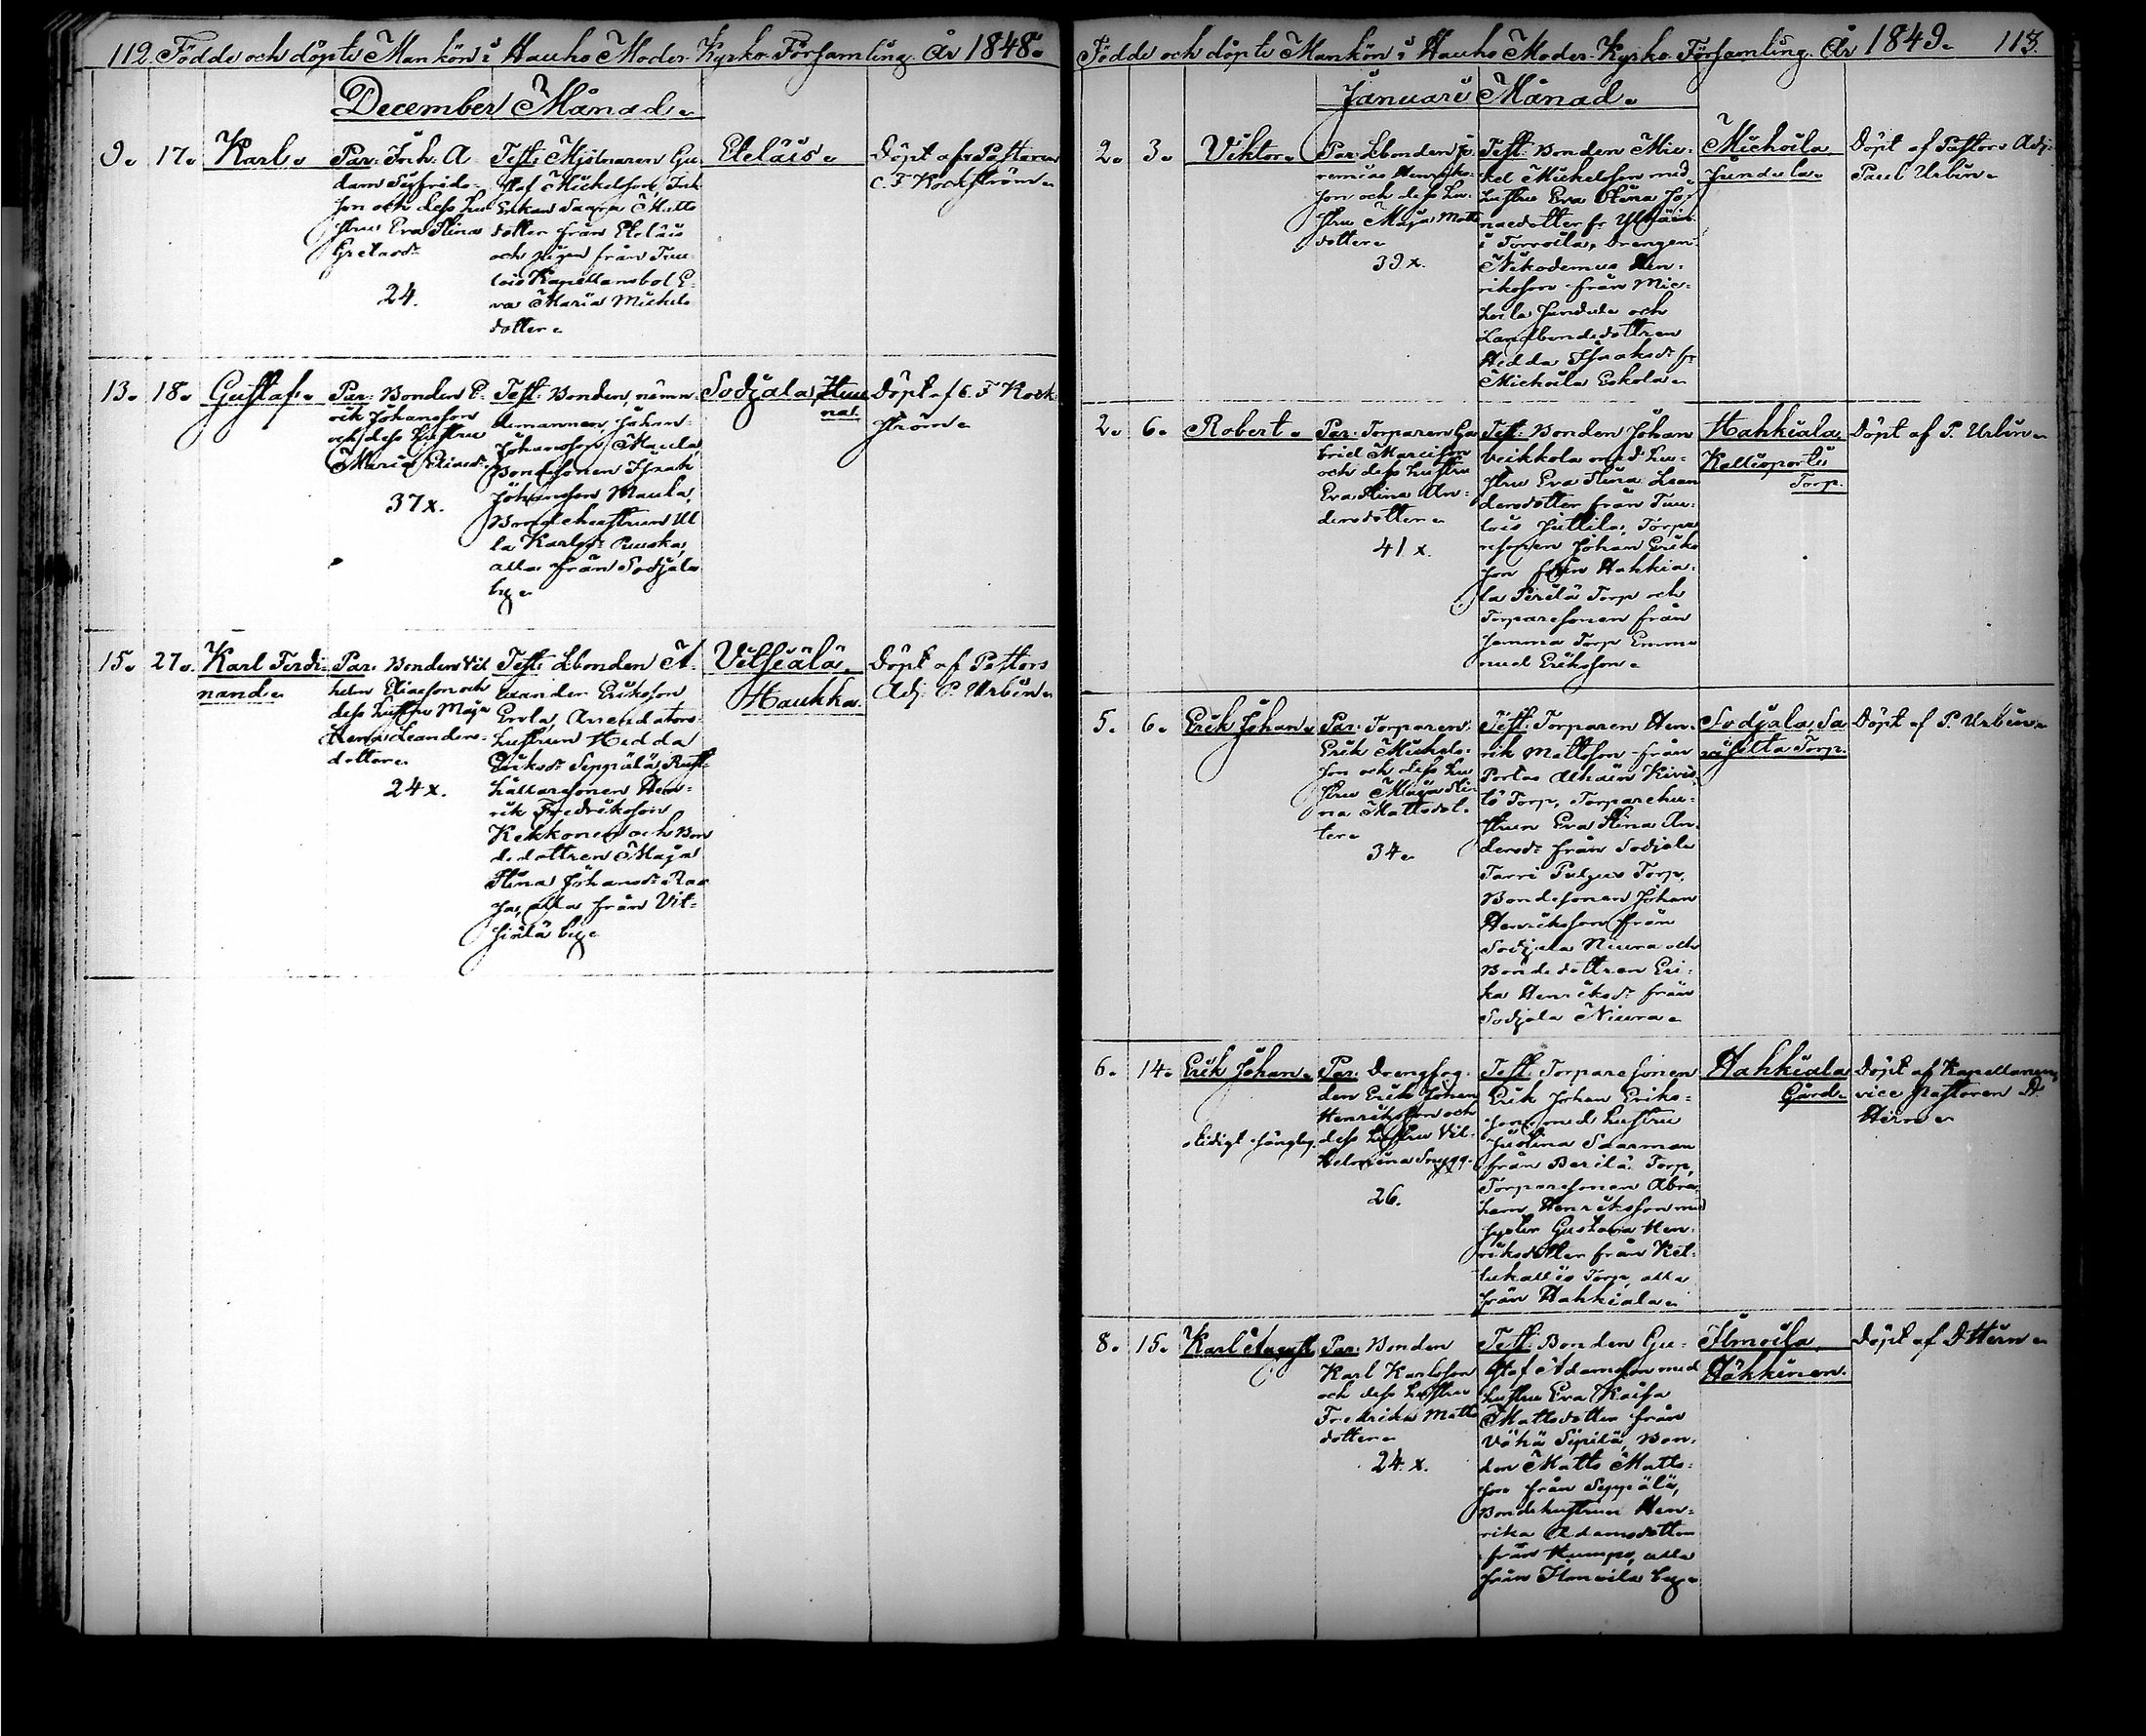 112. Födde och döpte Mankön i Hauho Moder Kyrko Församling År 1848.
December Månad.
9. 17. Karl.
Par: Inh. A
dam Sigfrids-
son och dess hu
stru Eva Stina
24.
Test: Mjölnaren Gu
staf Michelsson, Inh.
Enkan Matts
dotter från Eteläis
och pigan från Tuu-
lois Kapellansbol E-
va Maria Michels
dotter.
Eteläis.
Döpt af Pastorn
C. F. Rockström.
13. 18. Gustaf.
Par: Bonden E-
rik Johansson
och dess hustru
Maria Eliaed.
37 x.
Test: Bonden, näm-
demannen Johan
Johansson Maula,
Bondesonen Isaak
Johansson Maula,
Bondehustrun Ul
la Karlsdr
alla från Sodjala
by.
Sodjala
Döpt af C. F. Rock
ström.
15. 27. Karl Ferdi-
nand.
Par: Bonden Vil
helm Eliaesson och
dess hustru Maja
Lena Leanders-
dotter.
24 x.
Test: Lbonden A
lexander Eriksson
Erola, Arrendators-
hustrun Hedda
Eriksdr Seppälä, Rust-
hållaresonen Hen-
rik Fredriksson
Kekkonen och Bon
dedottren Maja
Stina Johansdr
alla från Vit-
siälä by.
Vitsiälä,
Haukka.
Döpt af Pastors
Adj. P. Urbin.
Födde och döpte Mankön i Hauho Moder Kyrko Församling År 1849. 113.
Januari Månad.
2. 3. Viktor.
Par: Lbonden Je-
remias Henriks-
son och dess hu-
stru Maja Matts
dotter.
39 x.
Test: Bonden Mic-
kel Michelsson med
hustru Eva Stina Jo-
naedotter fr.
i Torvoila, Drengen
Nikodemus Hen-
riksson från Mic-
hoila Jundila och
Landbondedottren
Hedda Isaaksdr fr.
Michoila Eskola.
Michoila,
Jundila.
Döpt af Pastors Adj.
Paul Urbin.
2. 6. Robert.
Par: Torparen Ga
briel Marcisson
och dess hustru
Eva Stina An-
dersdotter.
41 x.
Test: Bonden Johan
Veikkola med hu-
stru Eva Stina Lean
dersdotter från Tuu-
lois Juttila, Torpa
resonen Johan Eriks
son från Hahkia-
la Perilä Torp och
Torparesonen från
Jamma Torp Emma
nuel Eriksson.
Hahkiala,
Kallioportti
Torp.
Döpt af P. Urbin.
5. 6. Erik Johan.
Par: Torparen
Erik Michels-
son och dess hu
stru Maja Sti-
na Mattsdot-
ter.
34.
Test: Torparen Hen-
rik Mattsson från
Portas Alhain Kivis-
tö Torp, Torparehu-
strun Eva Stina An-
dersdr från Sodjala
Tarri Torp,
Bondesonen Johan
Henriksson från
Sodjala Niura och
Bondedottren Eri-
ka Henriksdr från
Sodjala Niura.
Sodjala, Sa
Torp.
Döpt af P. Urbin.
6. 14. Erik Johan.
Par: Drengfog-
den Erik Johan
Henriksson och
dess hustru Vil-
helmina Snygg.
26.
Test: Torparesonen
Erik Johan Eriks-
son med hustru
Justina Saarman
från Torp,
Torparesonen Abra-
ham Henriksson med
syster Gustava Hen-
riksdotter från
Torp, alla
från Hahkiala.
Hahkiala
Gård.
Döpt af Kapellanen,
vice Pastoren A.
Hirn.
8. 15. Karl August.
Par: Bonden
Karl Karlsson
och dess hustru
Fredrika Matts
dotter.
24. x.
Test: Bonden Gu-
staf Adamsson med
hustru Eva Kaisa
Mattsdotter från
Vähä Sipilä, Bon-
den Matts Matts-
son från Seppälä,
Bondehustrun Hen-
rika Adamsdotter
från Kumpo, alla
från Ilmoila by.
Ilmoila,
Häkkinen.
Döpt af A Hirn.